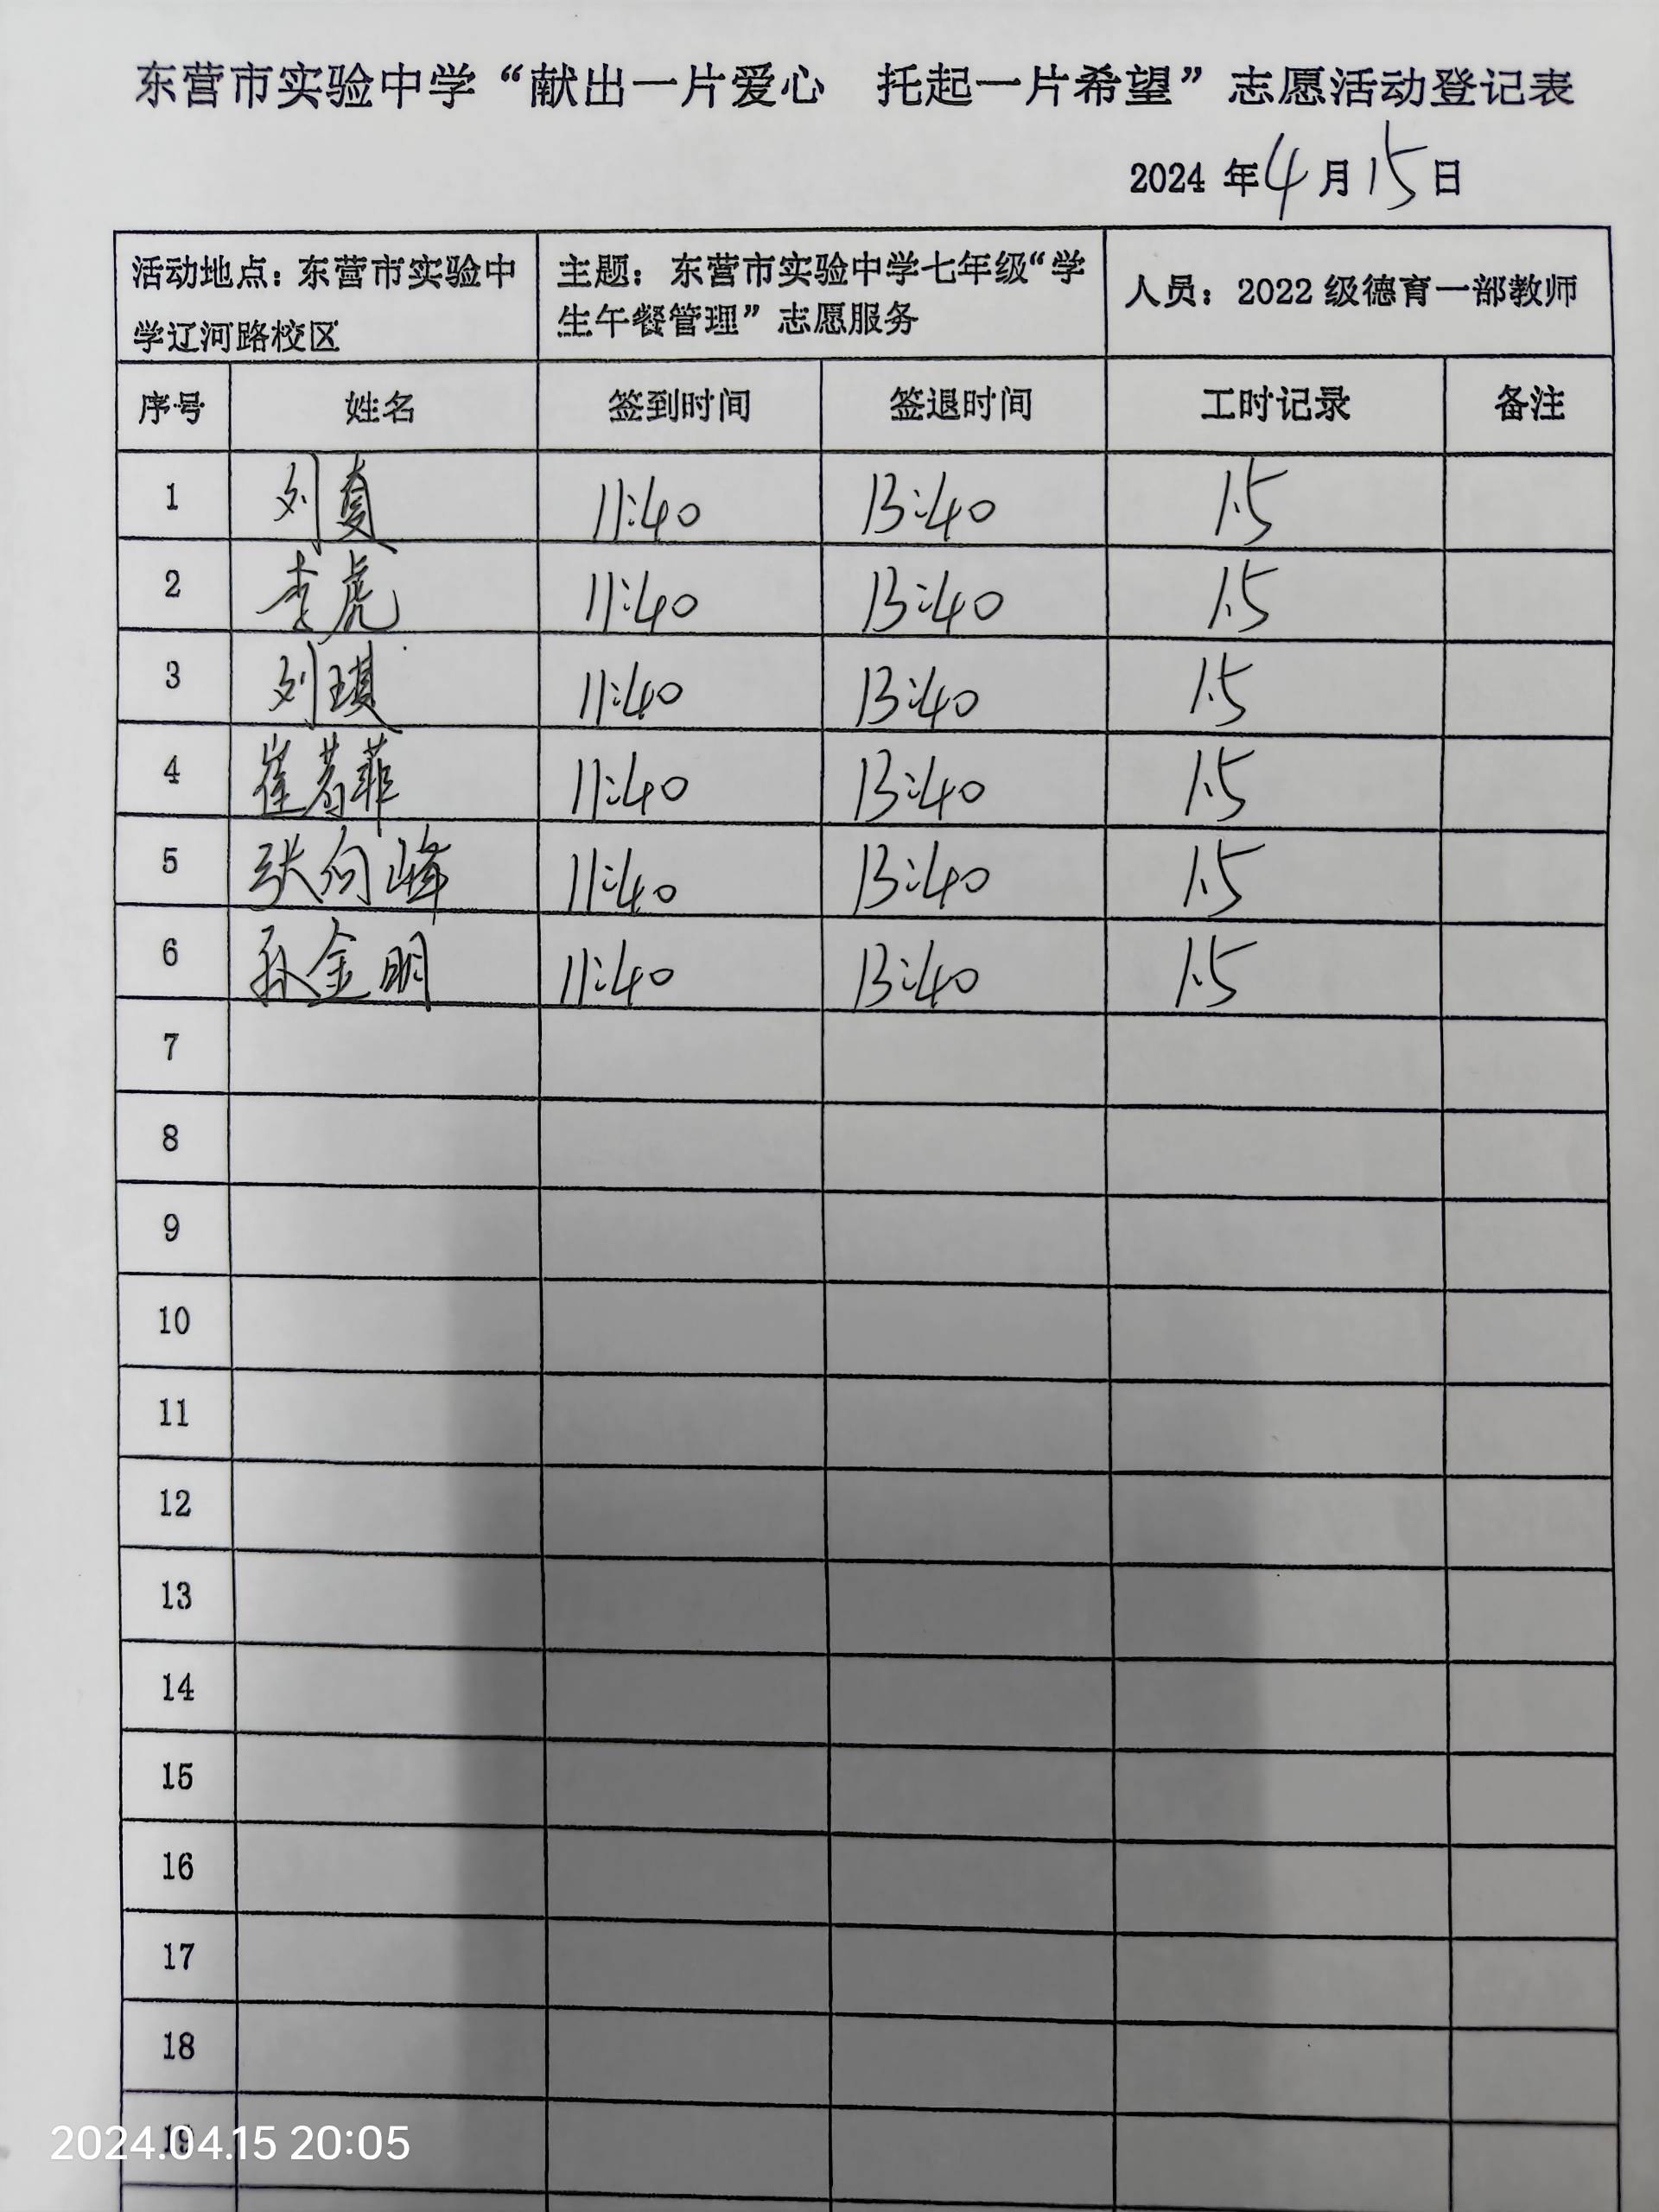 东营市实验中学“献出一片爱心 托起一片希望”志愿活动登记表
2024 年4月15日
活动地点：东营市实验中学辽河路校区 主题：东营市实验中学七年级“学生午餐管理”志愿服务 人员：2022 级德育一部教师
序号 姓名 签到时间 签退时间 工时记录 备注
1 刘夏 11:40 13:40 1.5
2 李虎 11:40 13:40 1.5
3 刘琪 11:40 13:40 1.5
4 崔若菲 11:40 13:40 1.5
5 张向峰 11:40 13:40 1.5
6 孙金明 11:40 13:40 1.5
7
8
9
10
11
12
13
14
15
16
17
18
19
2024.04.15 20:05